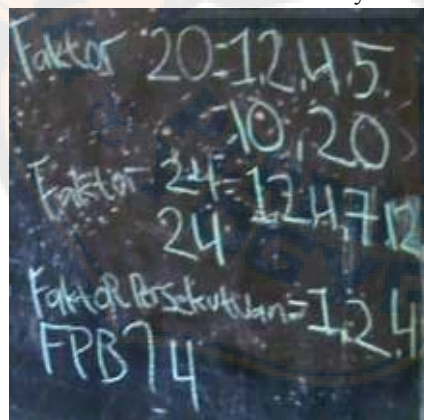 Faktor 20=1,2,4,5.
10,20
Faktor 24=1,2,4,7,12
24
Faktor Persekutuan=1,2,4
FPB 4